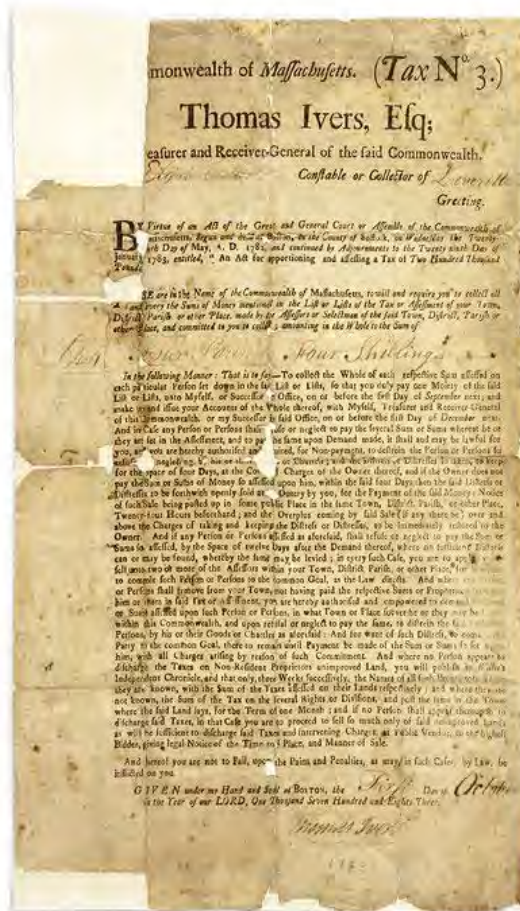 monwealth of Maſſachuſetts. (Tax No. 3.)
Thomas Ivers, Eſq;
eaſurer and Receiver-General of the ſaid Commonwealth.
Conſtable or Collector of Leverett
Greeting.
BY Virtue of an Act of the Great and General Court or Aſſembly of the Commonwealth of
in the County of on Wedneſday the Twenty-
Day of May, A. D. 1782, and continued by Adjournments to the Twenty ninth Day of
January 1783, entitled, "An Act for apportioning and aſſeſſing a Tax of Two Hundred Thouſand
Pounds
SE are in the Name of the Commonwealth of Maſſachuſetts, to will and require you to collect all
and every the Sums of Money mentioned in the Liſt or Liſts of the Tax or Aſſeſſment of your Town,
Diſtrict, Pariſh or other Place, made by the Aſſeſſors or Selectmen of the ſaid Town, Diſtrict, Pariſh or
other Place, and committed to you to collect; amounting in the Whole to the Sum of
Four Shillings
In the following Manner: That is to ſay—To collect the Whole of each reſpective Sum aſſeſſed on
each particular Perſon ſet down in the ſaid Liſt or Liſts, ſo that you duly pay one Moiety of the ſaid
Liſt or Liſts, unto Myſelf, or Succeſſor Office, on or before the firſt Day of September next; and
make and iſſue your Accounts of the Whole thereof, with Myſelf, Treaſurer and Receiver-General
of this Commonwealth, or my Succeſſor ſaid Office, on or before the firſt Day of December next.
And in Caſe any Perſon or Perſons ſhall or neglect to pay the ſeveral Sum or Sums wherein he or
they are ſet in the Aſſeſſment, and to pay the ſame upon Demand made, it ſhall and may be lawful for
you, are hereby authoriſed and required, for Non-payment, to diſtrein the Perſon or Perſons ſo
neglecting, by his or or Chattels; and the Diſtreſs or Diſtreſſes ſo taken, to keep
for the ſpace of four Days, at the Coſt Charges of the Owner thereof, and if the Owner does not
pay the Sum or Sums of Money ſo aſſeſſed upon him, within the ſaid four Days; then the ſaid Diſtreſs or
Diſtreſſes to be forthwith openly ſold at Outcry by you, for the Payment of the ſaid Money: Notice
of ſuch Sale being poſted up in ſome public Place in the ſame Town, Diſtrict, Pariſh, or other Place,
Twenty-four Hours beforehand; and the Overplus coming by ſaid Sale (if any there be) over and
above the Charges of taking and keeping the Diſtreſs or Diſtreſſes, to be immediately reſtored to the
Owner. And if any Perſon or Perſons aſſeſſed as aforeſaid, ſhall refuſe or neglect to pay the Sum or
Sums ſo aſſeſſed, by the Space of twelve Days after the Demand thereof, where no ſufficient Diſtreſs
can or may be found, whereby the ſame may be levied; in every ſuch Caſe, you are to
two or more of the Aſſeſſors within your Town, Diſtrict, Pariſh, or other Place,
to commit ſuch Perſon or Perſons to the common Goal, as the Law directs. And where
or Perſons ſhall remove from your Town, not having paid the reſpective Sums or Proportions
him or them in ſaid Liſt or Aſſeſſment, you are hereby authoriſed and empowered to demand
or Sums aſſeſſed upon ſuch Perſon or Perſons, in what Town or Place ſoever he or they may be
within this Commonwealth, and upon refuſal or neglect to pay the ſame, to diſtrein the ſaid
Perſons, by his or their Goods or Chattels as aforeſaid: And for want of ſuch Diſtreſs, to
Party to the common Goal, there to remain until Payment be made of the Sum or Sums ſo
him, with all Charges ariſing by reaſon of ſuch Commitment. And where no Perſon appears to
diſcharge the Taxes on Non-Reſident Proprietors unimproved Land, you will publiſh in
Independent Chronicle, and that only, three Weeks ſucceſſively, the Names of all ſuch
they are known, with the Sum of the Taxes aſſeſſed on their Lands reſpectively; and where they are
not known, the Sum of the Tax on the ſeveral Rights or Diviſions, and poſt the ſame in the Town
where the ſaid Land lays, for the Term of one Month; and if no Perſon ſhall appear thereupon to
diſcharge ſaid Taxes, in that Caſe you are to proceed to ſell ſo much only of ſaid unimproved Lands
as will be ſufficient to diſcharge ſaid Taxes and intervening Charges, at Public Vendue, to the higheſt
Bidder, giving legal Notice of the Time and Place, and Manner of Sale.
And hereof you are not to Fail, upon the Pains and Penalties, as may, in ſuch Caſes, by Law, be
inflicted on you.
GIVEN under my Hand and Seal at BOSTON, the Firſt Day of October
in the Year of our LORD, One Thouſand Seven Hundred and Eighty Three.
Thomas Ivers